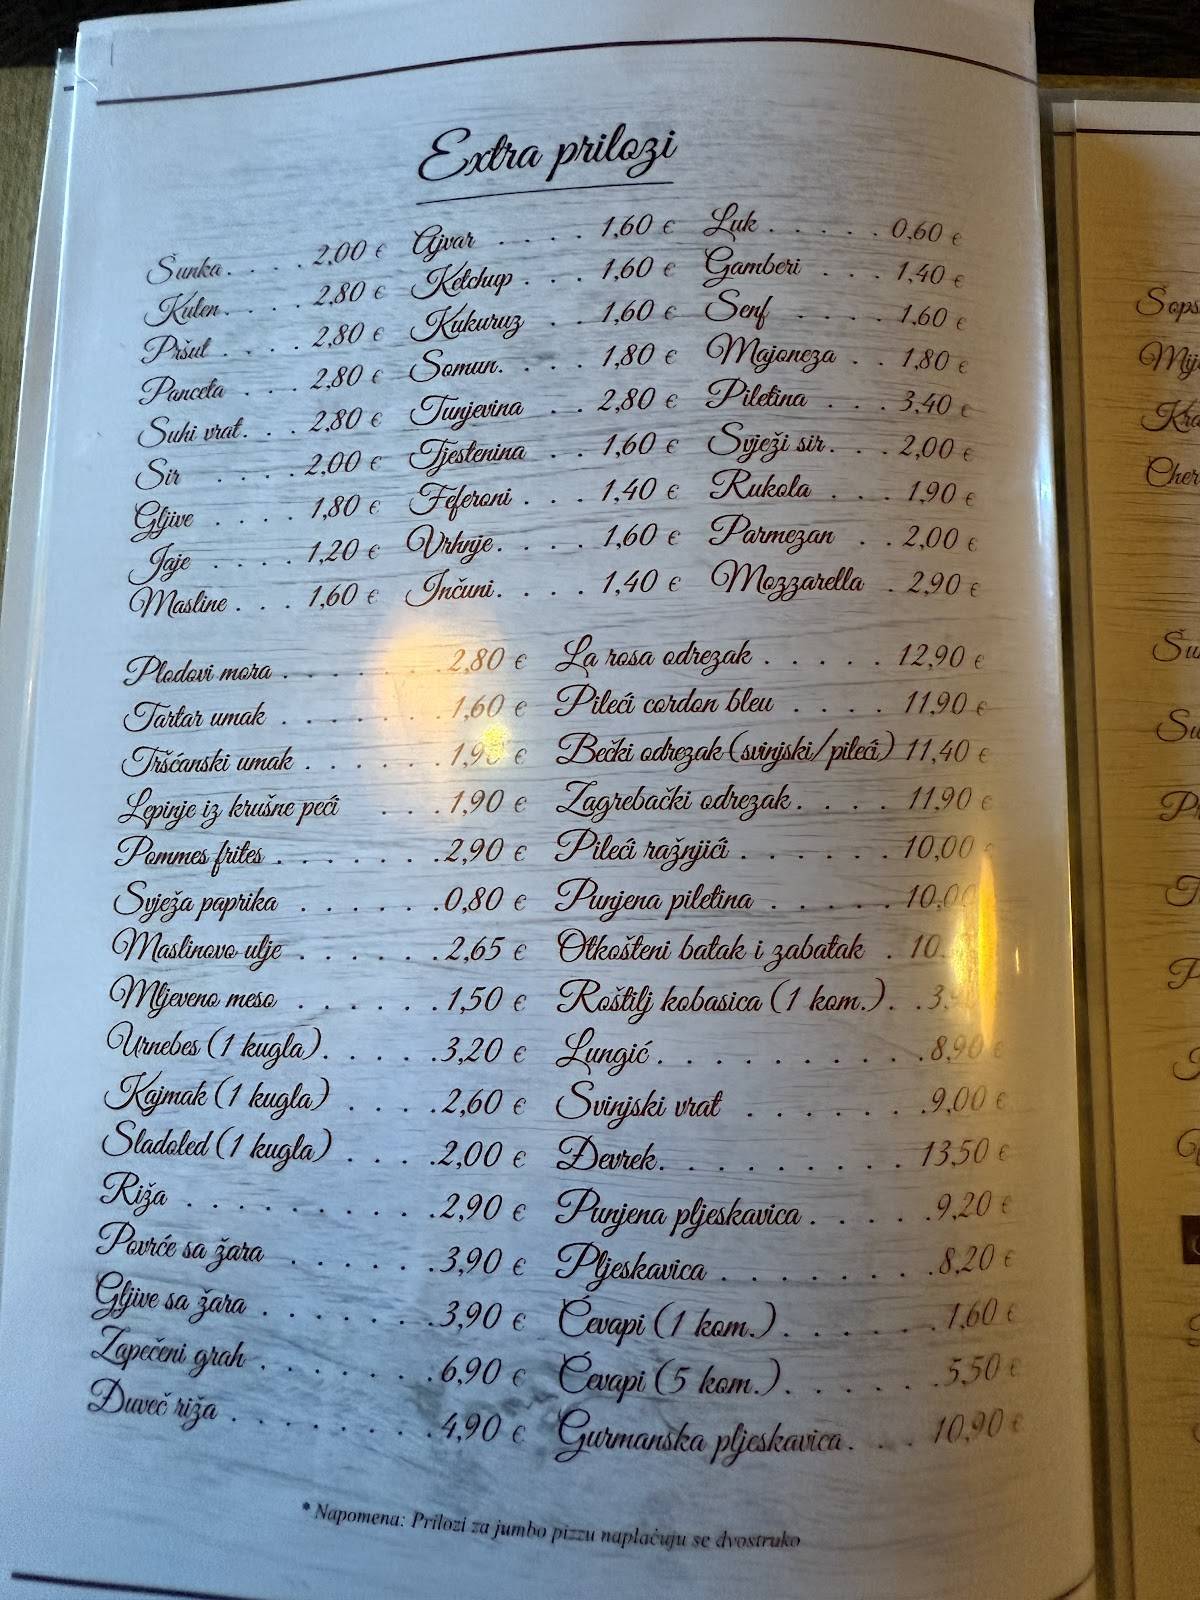 Extra prilozi
Šunka . . . . 2,00 €
Kulen . . . . 2,80 €
Pršut . . . . 2,80 €
Panceta . . . 2,80 €
Suhi vrat . . . 2,80 €
Sir . . . . 2,00 €
Gljive . . . . 1,80 €
Jaje . . . . 1,20 €
Masline . . . 1,60 €
Ajvar . . . . 1,60 €
Ketchup . . . 1,60 €
Kukuruz . . 1,60 €
Somun . . . . 1,80 €
Tunjevina . . 2,80 €
Tjestenina . . 1,60 €
Feferoni . . . 1,40 €
Vrhnje . . . . 1,60 €
Inćuni . . . . 1,40 €
Luk . . . . . 0,60 €
Gamberi . . . 1,40 €
Senf . . . . 1,60 €
Majoneza . . 1,80 €
Piletina . . . 3,40 €
Svježi sir . . . 2,00 €
Rukola . . . 1,90 €
Parmezan . . 2,00 €
Mozzarella . 2,90 €
Plodovi mora . . . . . . . 2,80 €
Tartar umak . . . . . . . 1,60 €
Tršćanski umak . . . . . .
Lepinje iz krušne peći . . . 1,90 €
Pommes frites . . . . . . . 2,90 €
Svježa paprika . . . . . . 0,80 €
Maslinovo ulje . . . . . . 2,65 €
Mljeveno meso . . . . . . 1,50 €
Urnebes (1 kugla) . . . . . 3,20 €
Kajmak (1 kugla) . . . . 2,60 €
Sladoled (1 kugla) . . . . 2,00 €
Riža . . . . . . . . . 2,90 €
Povrće sa žara . . . . . . 3,90 €
Gljive sa žara . . . . . . 3,90 €
Zapečeni grah . . . . . . 6,90 €
Đuveč riža . . . . . . . 4,90 €
La rosa odrezak . . . . . 12,90 €
Pileći cordon bleu . . . . 11,90 €
Bečki odrezak (svinjski/pileći) 11,40 €
Zagrebački odrezak . . . . 11,90 €
Pileći ražnjići . . . . . . 10,00
Punjena piletina . . . . . 10,00
Otkošteni batak i zabatak .
Roštilj kobasica (1 kom.) . .
Lungić . . . . . . . . . 8,90 €
Svinjski vrat . . . . . . . 9,00 €
Đevrek . . . . . . . . . 13,50 €
Punjena pljeskavica . . . . . 9,20 €
Pljeskavica . . . . . . . . 8,20 €
Ćevapi (1 kom.) . . . . . . 1,60 €
Ćevapi (5 kom.) . . . . . . 5,50 €
Gurmanska pljeskavica . . . 10,90 €
* Napomena: Prilozi za jumbo pizzu naplaćuju se dvostruko